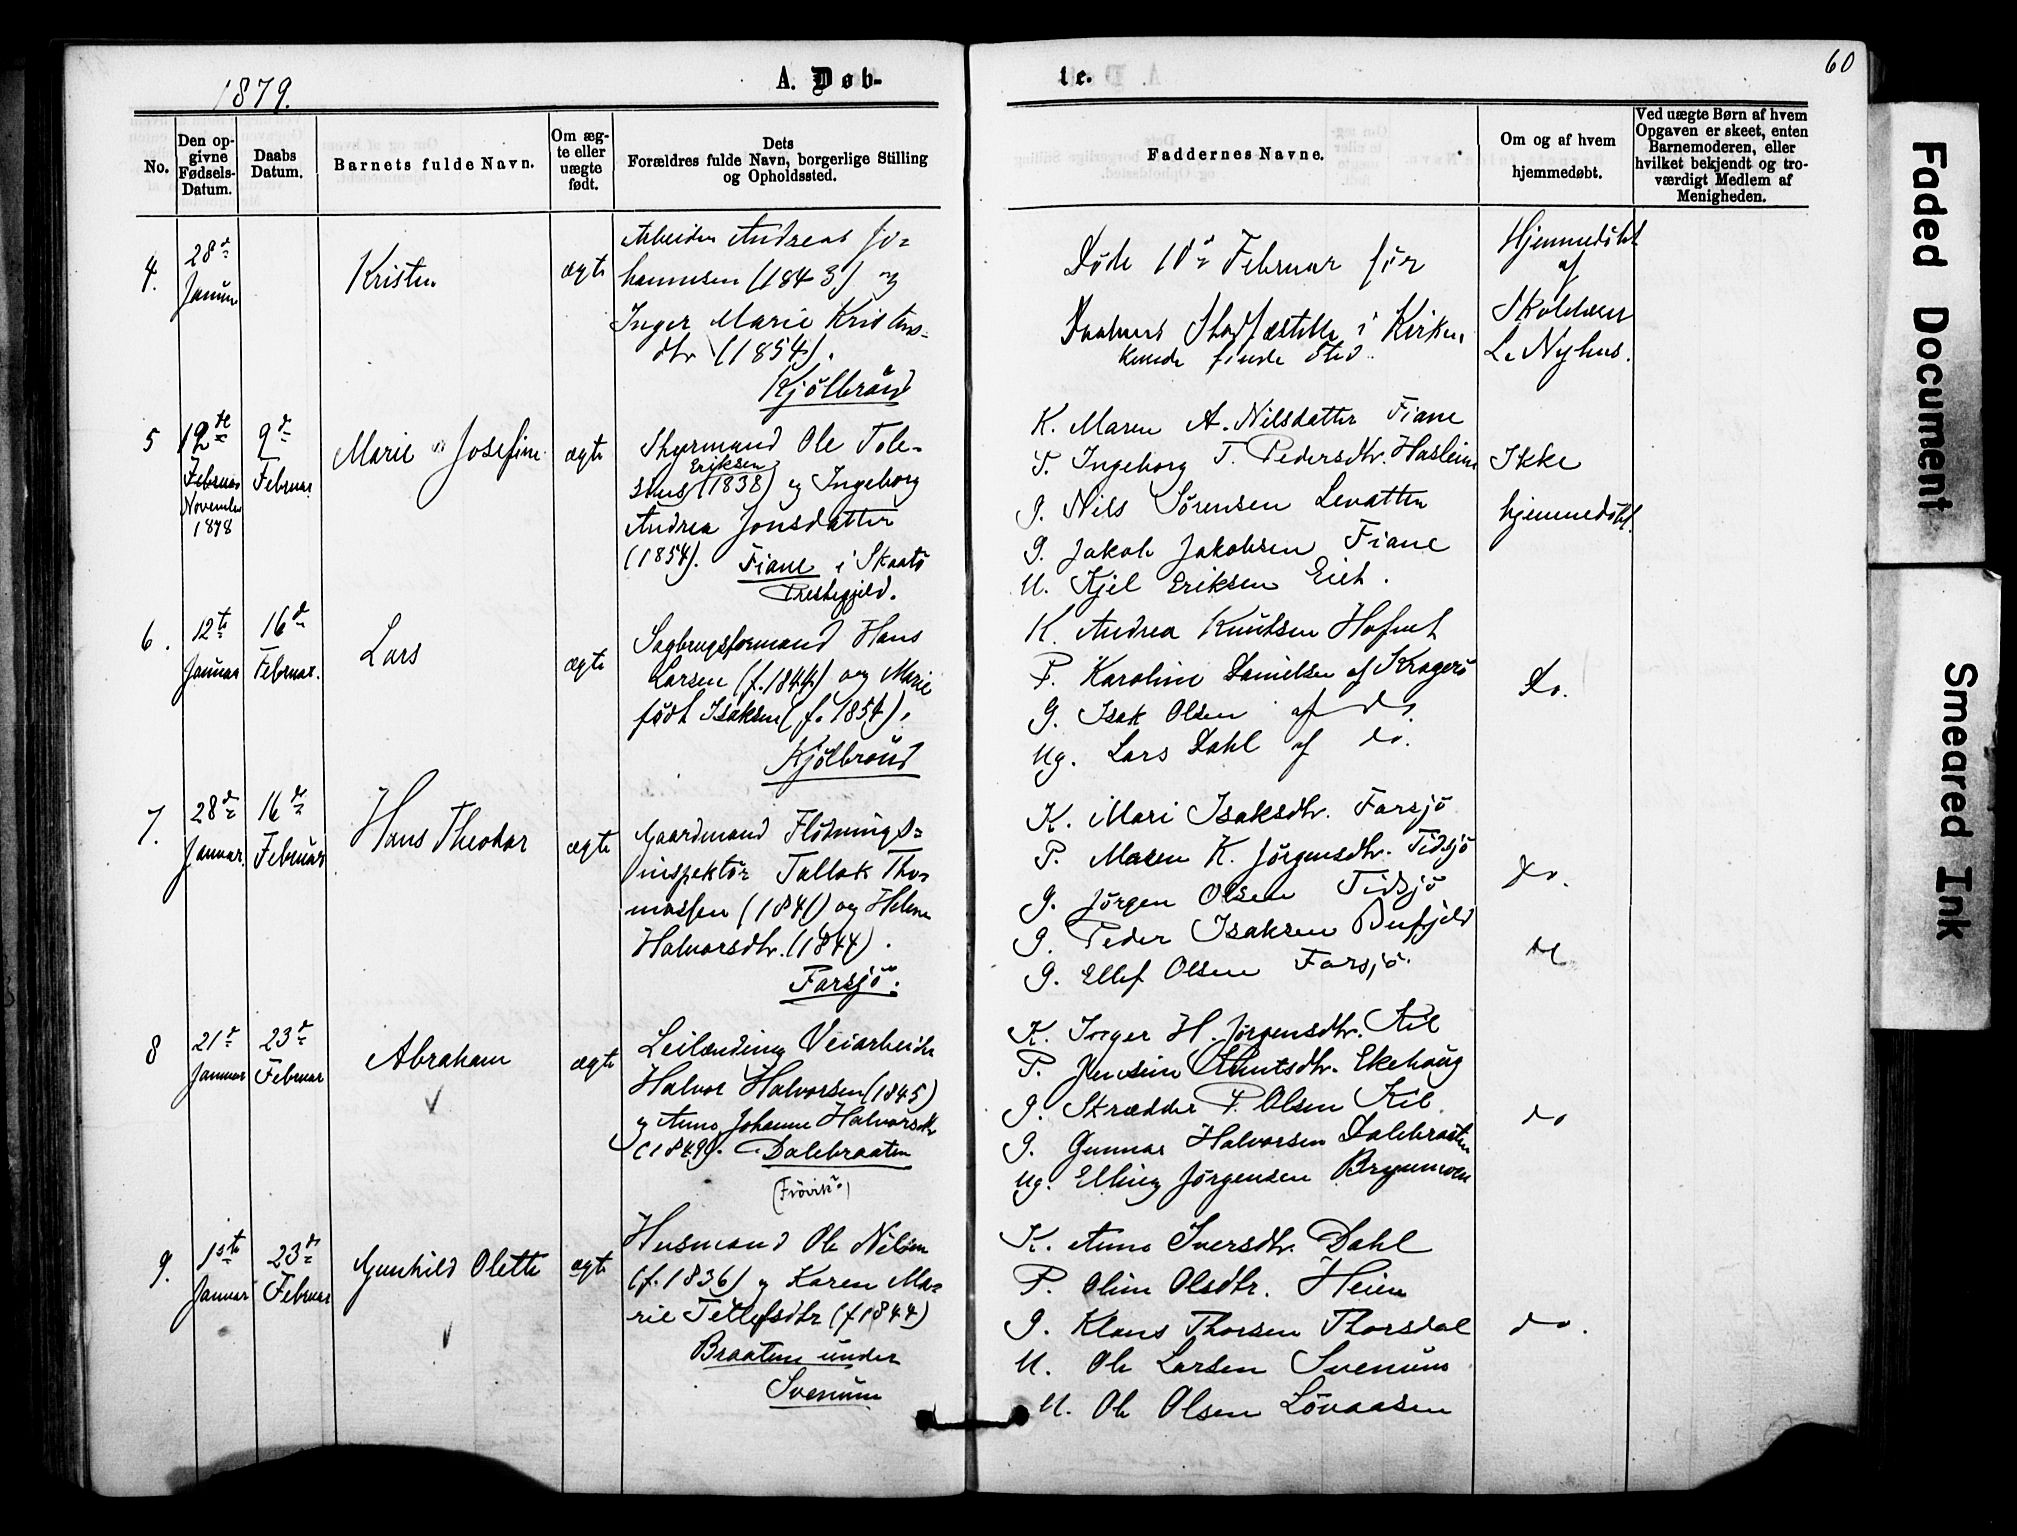 1879.
A. Døb-
te.
60
No.
Den op-
givne
Fødsels-
Datum.
Daabs
Datum.
Barnets fulde Navn.
Om æg-
te eller
uægte
født.
Dets
Forældres fulde Navn, borgerlige Stilling
og Opholdssted.
Faddernes Navne.
Om og af hvem
hjemmedøbt.
Ved uægte Børn af hvem
Opgaven er skeet, enten
Barnemoderen, eller
hvilket bekjendt og tro-
værdigt Medlem af
Menigheden.
4.
28de
Januar
Kristen
ægte
Arbeider Andreas Jo-
hannesen (1843) og
Inger Marie Kristens-
dtr (1854).
Kjølbrønd
Døde 10de Februar før
Daabens Stadfæstelse i Kirken
kunde finde Sted.
Hjemmedøbt
af
Skolelærer
L. Nyhus.
5
12te
Februar
November
1878
9de
Februar
Marie Josefine
ægte
Styrmand Ole Tole-
Eriksen
(1838) og Ingeborg
Andrea Jonsdatter
(1854). Fiane i
Prestegjeld.
K. Maren A. Nilsdatter Fiane
P. Ingeborg T. Pedersdtr. Hasleim
G. Nils Sørensen
G. Jakob Jakobsen Fiane
U. Kjel Eriksen Eiet.
Ikke
hjemmedøbt.
6.
12te
Januar
16de
Februar.
Lars
ægte
Sagbrugsformand Hans
Larsen (f. 1844) og Marie
født Isaksen (f. 1854).
Kjølbrønd
K. Andrea Knutsen
P. Karoline Danielsen af Kragerø
G. Isak Olsen af do.
Ug. Lars Dahl af do.
Do.
7.
28de
Januar.
16de
Februar
Hans Theodor
ægte
Gaardmand Flødnings-
inspektør Tallak Tho-
massen (1841) og Helene
Halvorsdtr. (1844).
Farsjø.
K. Mari Isaksdtr. Farsjø
P. Maren K. Jørgensdtr. Tidsjø
G. Jørgen Olsen Tidsjø
G. Peder Isaksen Bufjeld
G. Ellef Olsen Farsjø.
Do.
8
21de
Januar
23de
Februar
Abraham
ægte
Leilænding Veiarbeider
Halvor Halvorsen (1845)
og Anne Johanne Halvorsdtr
(1849). Dalebraaten
(Frøvik)
K. Inger H. Jørgensdtr. Kil
P. Jensine Ekehaug
G. Skrædder P. Olsen Kil
G. Gunnar Halvorsen Dalebraaten
Ug. Elling Jørgensen Brynemoen
do
9.
1ste
Januar
23de
Februar
Gunhild Olette
ægte
Husmand Ole Nilsen
(f. 1836) og Karen Ma-
rie Tellefsdtr (f 1844)
Braaten under
Svenum
K. Anne Iversdtr. Dahl
P. Oline Olsdtr. Heien
G. Klaus Thorsen Thorsdal
U. Ole Larsen Svenum
U. Ole Olsen Løvaasen
do.
Faded Document
Smeared Ink